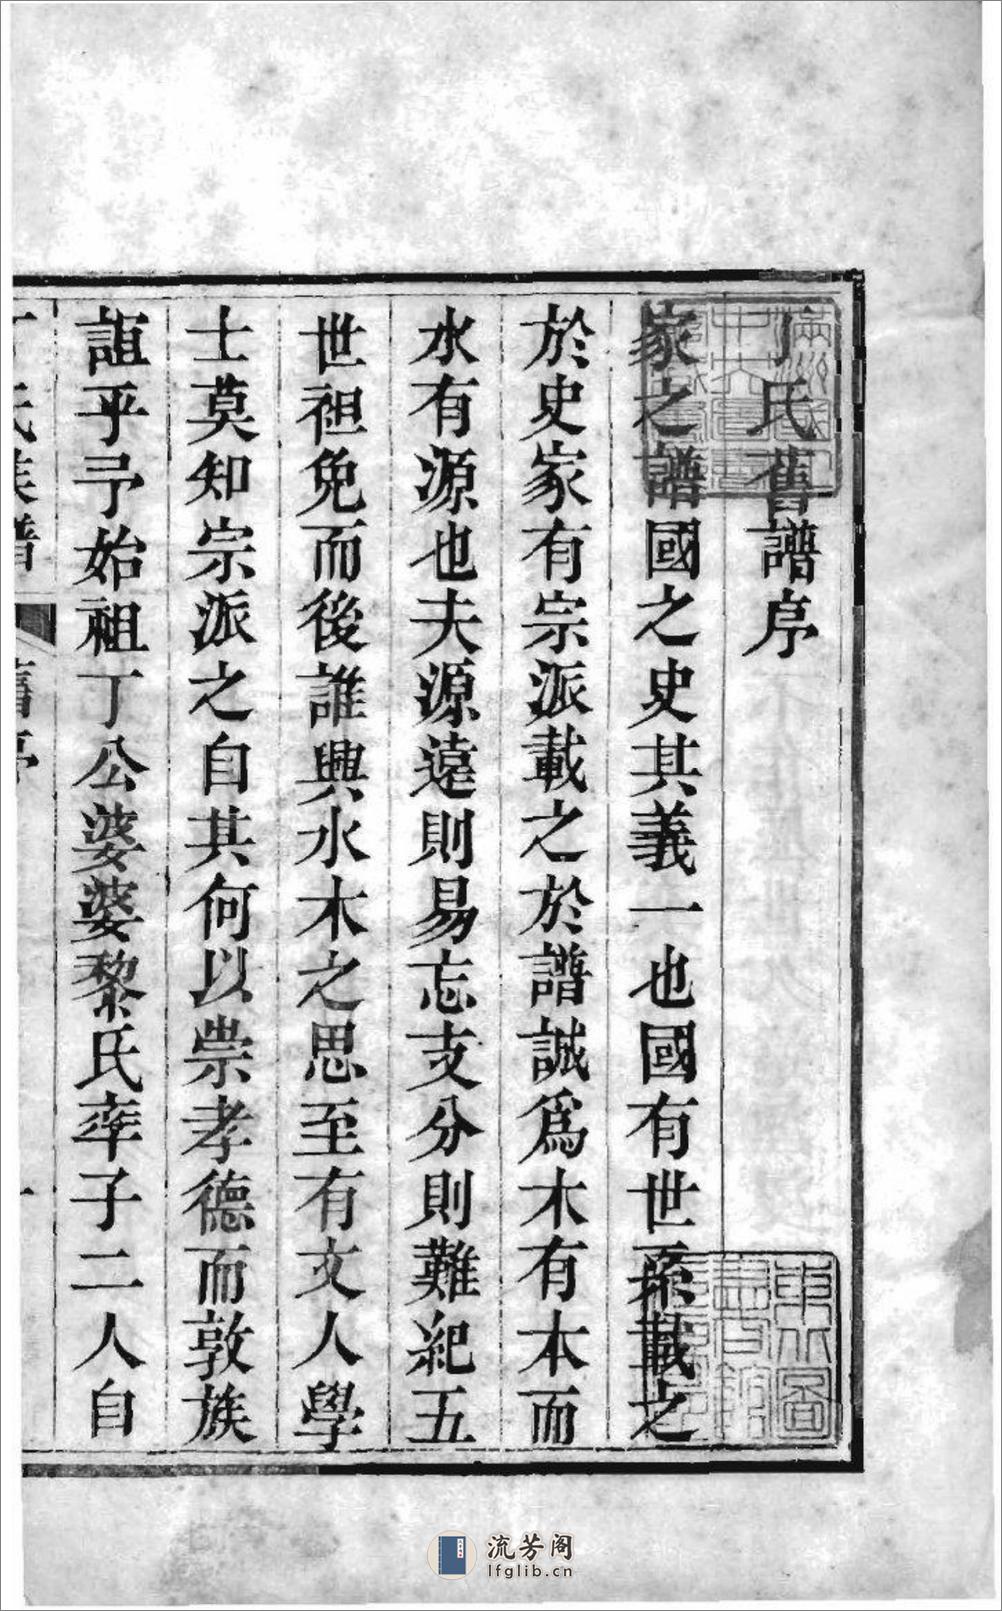 丁氏舊譜序
家之譜國之史其義一也國有世系載之
於史家有宗派載之於譜誠爲木有本而
水有源也夫源遠則易忘支分則難紀五
世袒免而後誰興水木之思至有文人學
士莫知宗派之自其何以崇孝德而敦族
誼乎予始祖丁公婆婆黎氏率子二人自
丁氏族譜 舊序 一
流芳阁
lfglib.cn